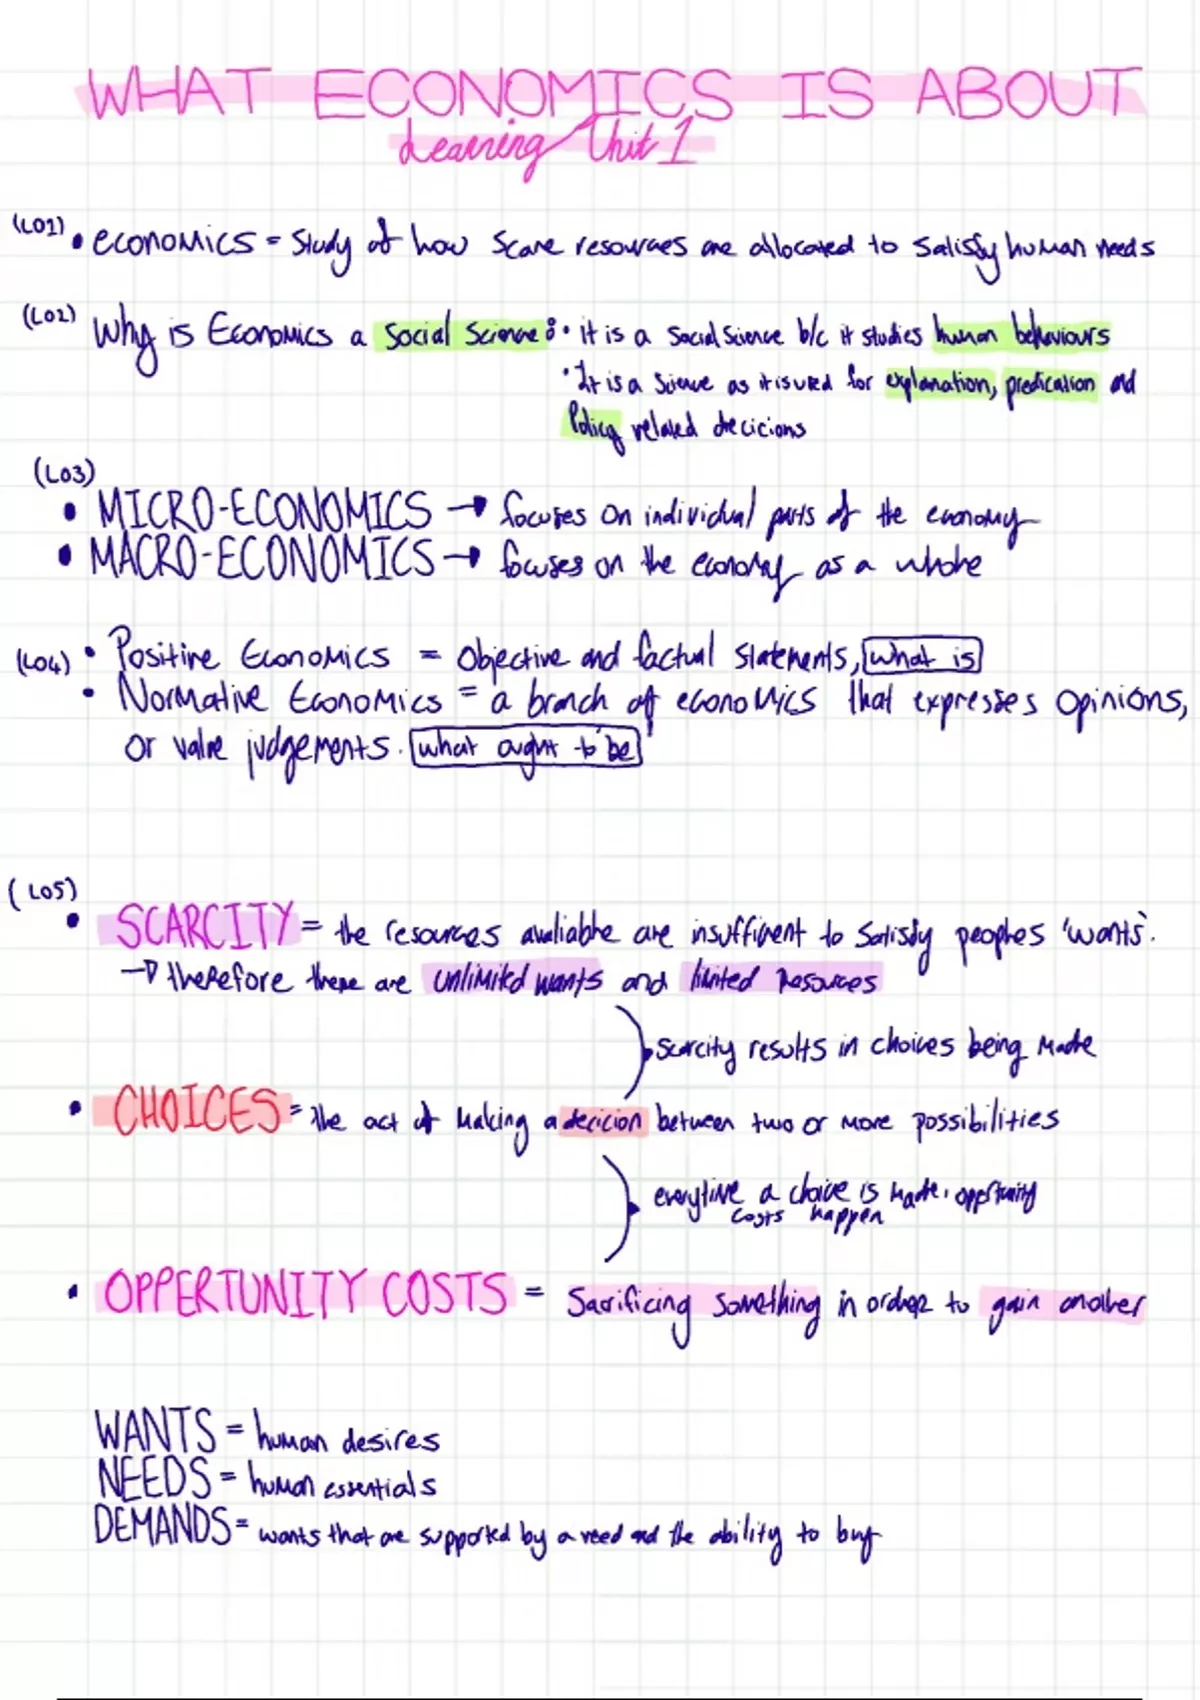 WHAT ECONOMICS IS ABOUT
Learning Unit 1
(LO1) • economics = study of how scarce resources are allocated to satisfy human needs
(LO2) Why is Economics a Social Science: • it is a Social Science b/c it studies human behaviours
• It is a Science as it is used for explanation, predication and
Policy related decicions
(LO3)
• MICRO-ECONOMICS → focuses on individual parts of the economy
• MACRO-ECONOMICS → focuses on the economy as a whole
(LO4) • Positive Economics = Objective and factual statements, what is
• Normative Economics = a branch of economics that expresses opinions,
or value judgements. what ought to be
(LO5)
• SCARCITY = the resources avaliable are insufficent to satisfy peoples 'wants'.
→ therefore there are unlimited wants and limited resources
scarcity results in choices being made
• CHOICES = the act of making a decicion between two or more possibilities
everytime a choice is made, opportunity
costs happen
• OPPERTUNITY COSTS = Sacrificing something in order to gain another
WANTS = human desires
NEEDS = human essentials
DEMANDS = wants that are supported by a need and the ability to buy